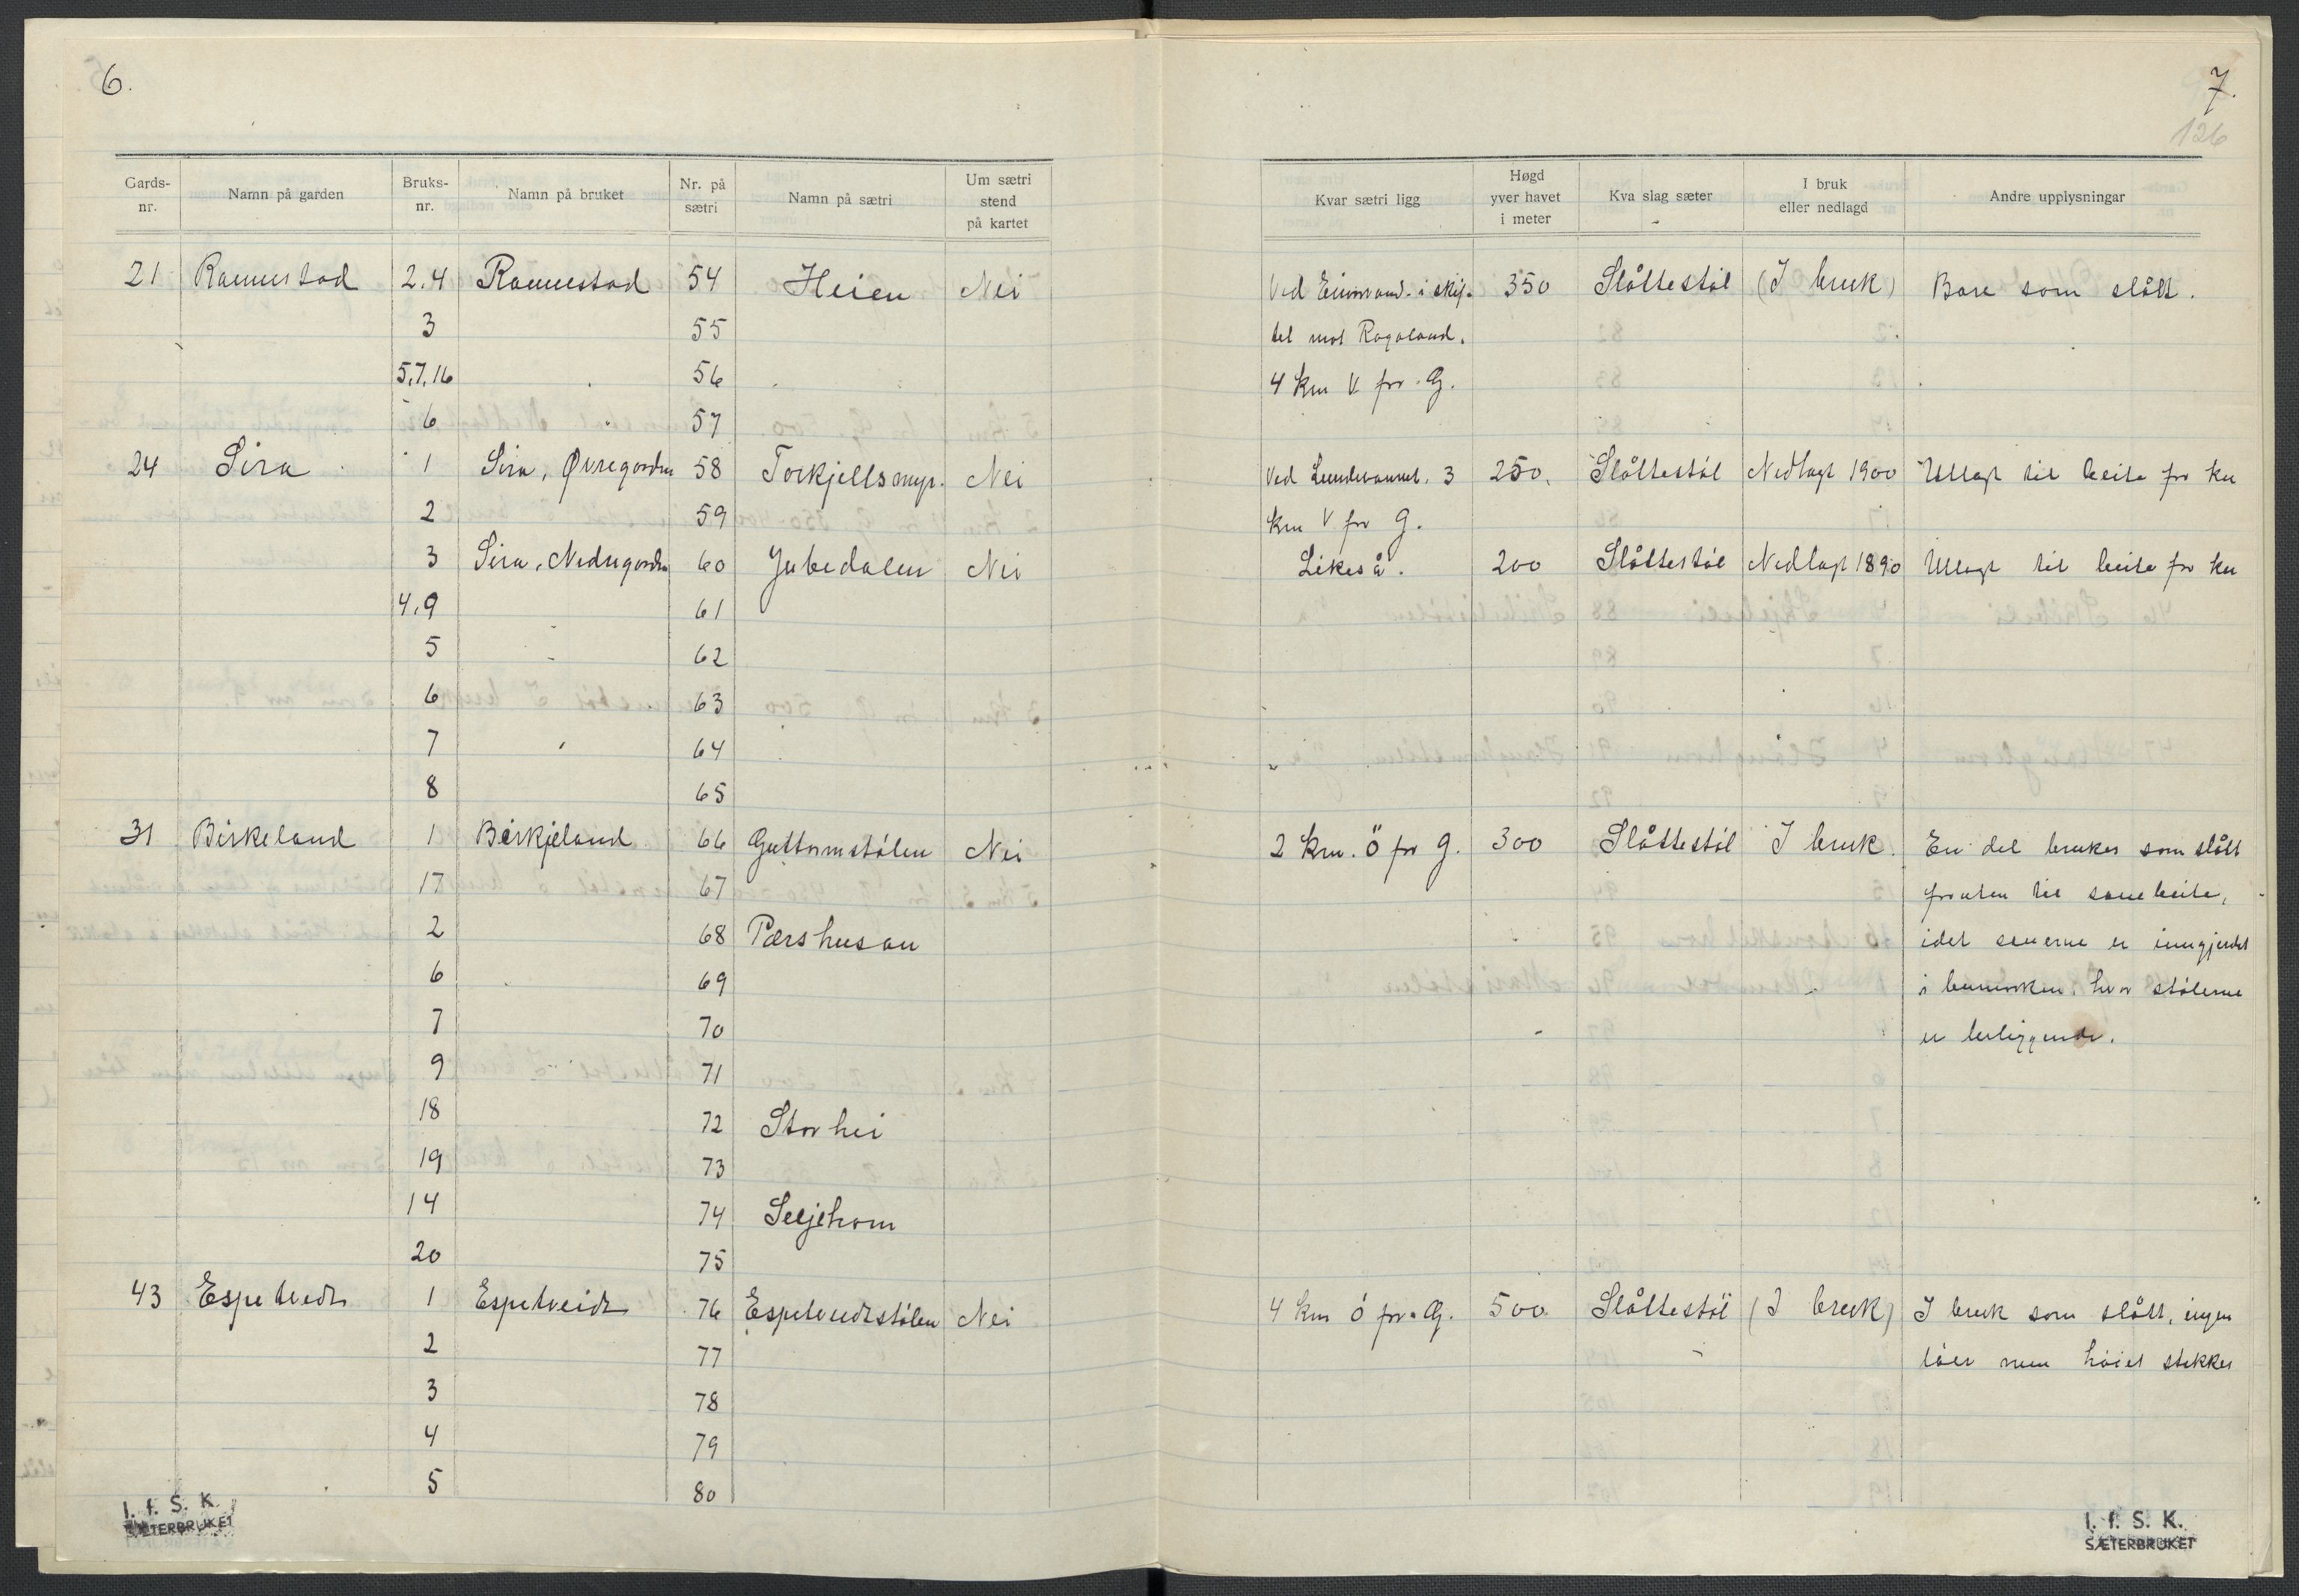 6.
Gards-nr. Namn på garden Bruks-nr. Namn på bruket Nr. på sætri Namn på sætri Um sætri stend på kartet
21 Ramnestad 2.4 Ramnestad 54 Heien Nei
3 55
5,7,16 56
6 57
24 Sira 1 Sira, Øvregarden 58 Torkjellsmyr. Nei
2 59
3 Sira, Nedregarden 60 Jubedalen Nei
4,9 61
5 62
6 63
7 64
8 65
31 Birkeland 1 Birkjeland 66 Guttormstölen Nei
17 67
2 68 Pærshusan
6 69
7 70
9 71
18 72 Storhei
19 73
14 74 Seljehom
20 75
43 Espetvedt 1 Espetveidt 76 Espetvedtstölen Nei
2 77
3 78
4 79
5 80
I. f. S. K.
SÆTERBRUKET
7.
126
Kvar sætri ligg Høgd yver havet i meter Kva slag sæter I bruk eller nedlagd Andre upplysningar
Ved i skif- 350 Slåttestöl (I bruk) Bare som slått.
tet mot Rogaland.
4 km V for G.
Ved Lundevannet. 3 250. Slåttestöl Nedlagt 1900 Utlagt til beite for ku
km V for G.
Likeså. 200 Slåttestöl Nedlagt 1890 Utlagt til beite for ku
2 km. ö for G. 300 Slåttestöl I bruk. En del brukes som slått
foruten til sauebeite,
idet sauerne er inngjerdet
i heimarken, hvor stölerne
er beliggende.
4 km ö for G. 500 Slåttestöl (I bruk) I bruk som slått, ingen
löer men höiet stekkes
I. f. S. K.
SÆTERBRUKET